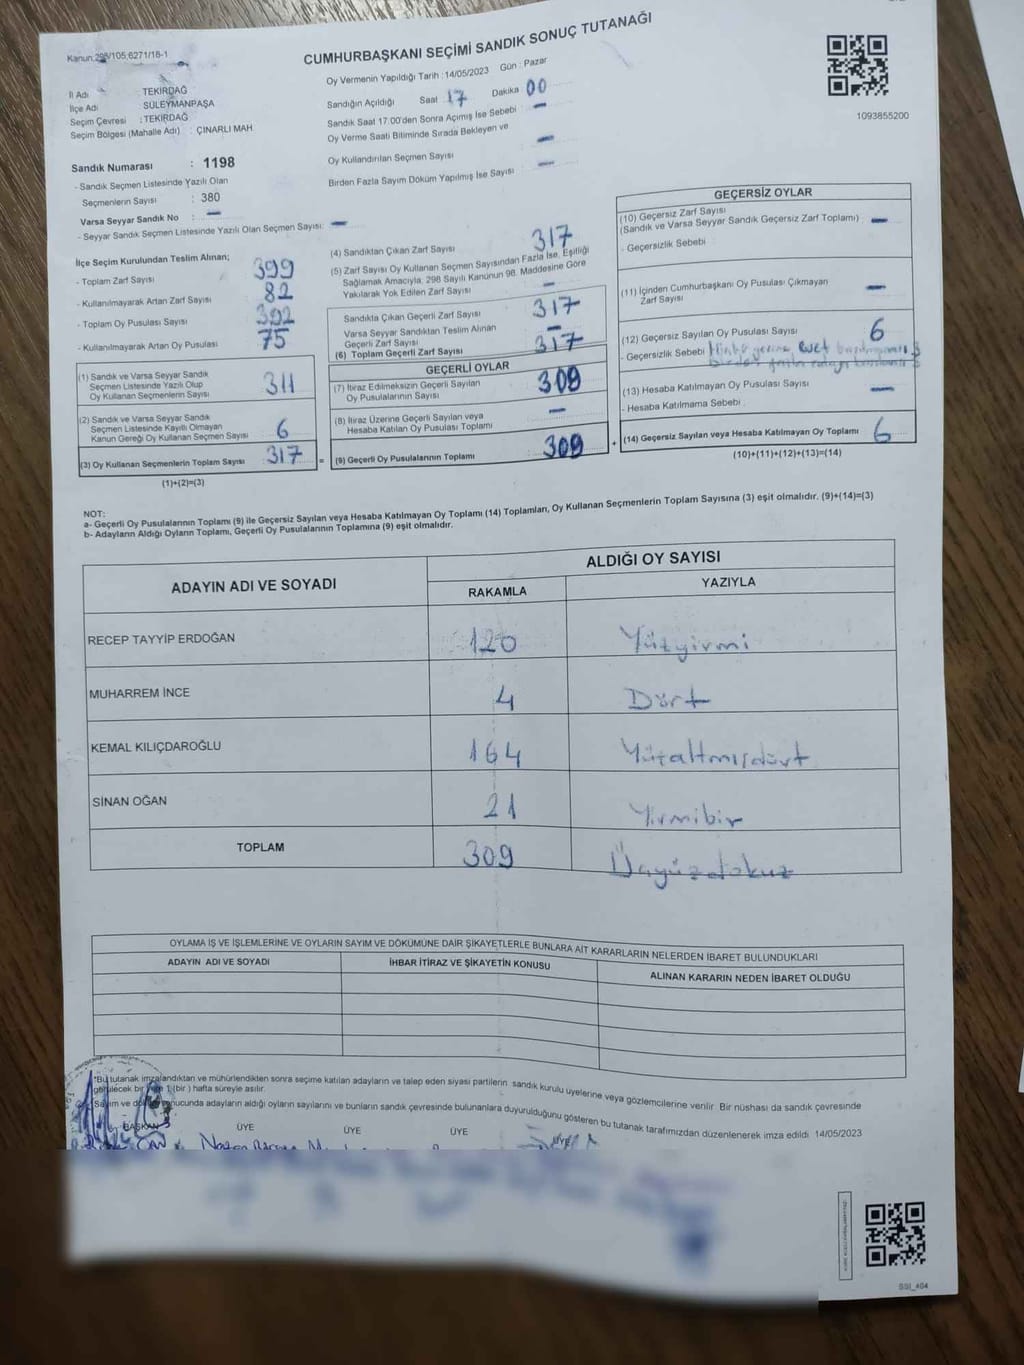 Kanun:298/105;6271/18-1
CUMHURBAŞKANI SEÇİMİ SANDIK SONUÇ TUTANAĞI
İl Adı : TEKİRDAĞ
İlçe Adı : SÜLEYMANPAŞA
Seçim Çevresi : TEKİRDAĞ
Seçim Bölgesi (Mahalle Adı) : ÇINARLI MAH
Sandık Numarası : 1198
- Sandık Seçmen Listesinde Yazılı Olan
Seçmenlerin Sayısı : 380
Varsa Seyyar Sandık No : -
- Seyyar Sandık Seçmen Listesinde Yazılı Olan Seçmen Sayısı: -
Oy Vermenin Yapıldığı Tarih : 14/05/2023 Gün : Pazar
Sandığın Açıldığı Saat 17 Dakika 00
Sandık Saat 17:00'den Sonra Açımış İse Sebebi : -
Oy Verme Saati Bitiminde Sırada Bekleyen ve
Oy Kullandırılan Seçmen Sayısı : -
Birden Fazla Sayım Döküm Yapılmış İse Sayısı : -
1093855200
İlçe Seçim Kurulundan Teslim Alınan;
- Toplam Zarf Sayısı 399
- Kullanılmayarak Artan Zarf Sayısı 82
- Toplam Oy Pusulası Sayısı 392
- Kullanılmayarak Artan Oy Pusulası 75
(1) Sandık ve Varsa Seyyar Sandık
Seçmen Listesinde Yazılı Olup
Oy Kullanan Seçmenlerin Sayısı 311
(2) Sandık ve Varsa Seyyar Sandık
Seçmen Listesinde Kayıtlı Olmayan
Kanun Gereği Oy Kullanan Seçmen Sayısı 6
(3) Oy Kullanan Seçmenlerin Toplam Sayısı 317 =
(1)+(2)=(3)
(4) Sandıktan Çıkan Zarf Sayısı 317
(5) Zarf Sayısı Oy Kullanan Seçmen Sayısından Fazla İse, Eşitliği
Sağlamak Amacıyla, 298 Sayılı Kanunun 98. Maddesine Göre
Yakılarak Yok Edilen Zarf Sayısı -
Sandıkta Çıkan Geçerli Zarf Sayısı 317
Varsa Seyyar Sandıktan Teslim Alınan
Geçerli Zarf Sayısı -
(6) Toplam Geçerli Zarf Sayısı 317
GEÇERLİ OYLAR
(7) İtiraz Edilmeksizin Geçerli Sayılan
Oy Pusulalarının Sayısı 309
(8) İtiraz Üzerine Geçerli Sayılan veya
Hesaba Katılan Oy Pusulası Toplamı -
(9) Geçerli Oy Pusulalarının Toplamı 309 +
GEÇERSİZ OYLAR
(10) Geçersiz Zarf Sayısı
(Sandık ve Varsa Seyyar Sandık Geçersiz Zarf Toplamı) -
- Geçersizlik Sebebi
(11) İçinden Cumhurbaşkanı Oy Pusulası Çıkmayan
Zarf Sayısı -
(12) Geçersiz Sayılan Oy Pusulası Sayısı 6
- Geçersizlik Sebebi yerine evet
(13) Hesaba Katılmayan Oy Pusulası Sayısı -
- Hesaba Katılmama Sebebi
(14) Geçersiz Sayılan veya Hesaba Katılmayan Oy Toplamı 6
(10)+(11)+(12)+(13)=(14)
NOT:
a- Geçerli Oy Pusulalarının Toplamı (9) ile Geçersiz Sayılan veya Hesaba Katılmayan Oy Toplamı (14) Toplamları, Oy Kullanan Seçmenlerin Toplam Sayısına (3) eşit olmalıdır. (9)+(14)=(3)
b- Adayların Aldığı Oyların Toplamı, Geçerli Oy Pusulalarının Toplamına (9) eşit olmalıdır.
ADAYIN ADI VE SOYADI
ALDIĞI OY SAYISI
RAKAMLA YAZIYLA
RECEP TAYYİP ERDOĞAN 120 Yüzyirmi
MUHARREM İNCE 4 Dört
KEMAL KILIÇDAROĞLU 164 Yüzaltmışdört
SİNAN OĞAN 21 Yirmibir
TOPLAM 309 Üçyüzdokuz
OYLAMA İŞ VE İŞLEMLERİNE VE OYLARIN SAYIM VE DÖKÜMÜNE DAİR ŞİKAYETLERLE BUNLARA AİT KARARLARIN NELERDEN İBARET BULUNDUKLARI
ADAYIN ADI VE SOYADI İHBAR İTİRAZ VE ŞİKAYETİN KONUSU ALINAN KARARIN NEDEN İBARET OLDUĞU
*Bu tutanak imzalandıktan ve mühürlendikten sonra seçime katılan adayların ve talep eden siyasi partilerin sandık kurulu üyelerine veya gözlemcilerine verilir. Bir nüshası da sandık çevresinde
görülecek bir yere 1 (bir ) hafta süreyle asılır.
Sayım ve döküm sonucunda adayların aldığı oyların sayılarını ve bunların sandık çevresinde bulunanlara duyurulduğunu gösteren bu tutanak tarafımızdan düzenlenerek imza edildi. 14/05/2023
BAŞKAN ÜYE ÜYE ÜYE ÜYE
SSI_404